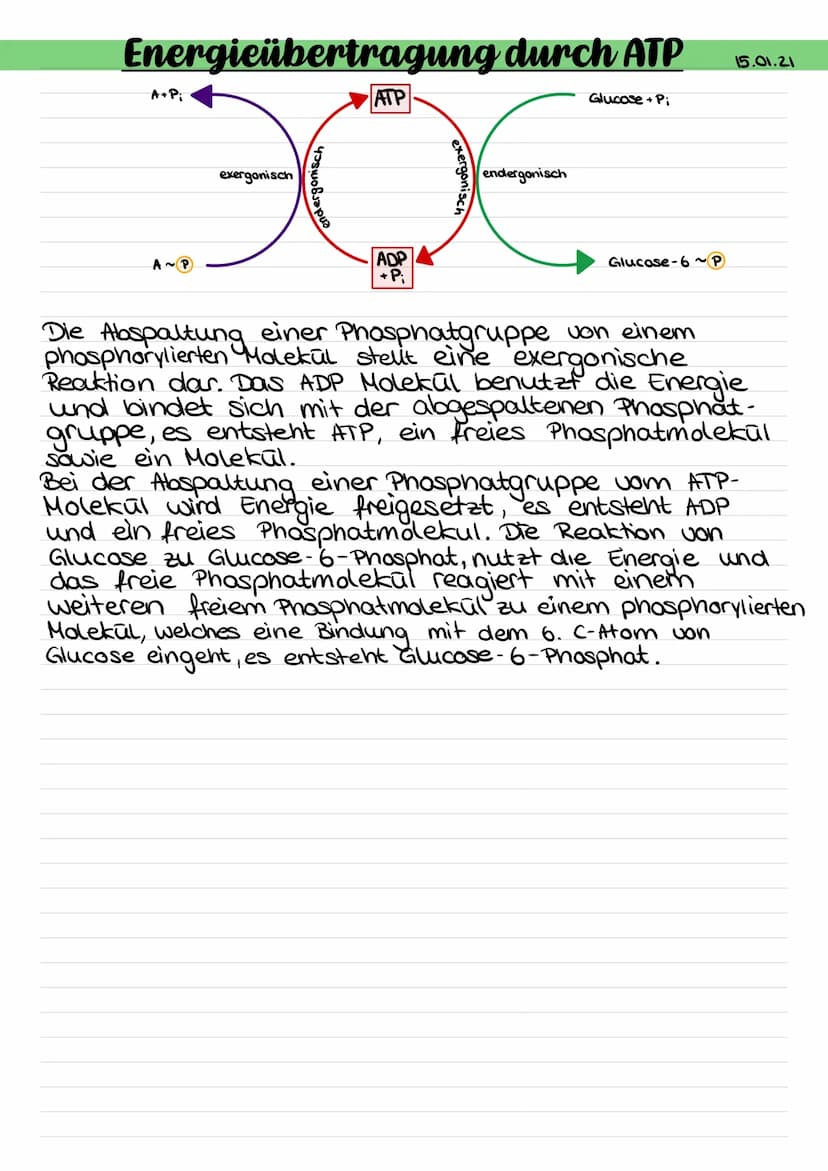 Energieübertragung durch ATP
15.01.21
A+Pi
ATP
Glucose + Pi
exergonisch
endergonisch
exergonisch
endergonisch
A~P
ADP
+ Pi
Glucose-6 ~P
Die Abspaltung einer Phosphatgruppe von einem
phosphorylierten Molekül stellt eine exergonische
Reaktion dar. Das ADP Molekül benutzt die Energie
und bindet sich mit der abgespaltenen Phosphat-
gruppe, es entsteht ATP, ein freies Phosphatmolekül
sowie ein Molekül.
Bei der Abspaltung einer Phosphatgruppe vom ATP-
Molekül wird Energie freigesetzt, es entsteht ADP
und ein freies Phosphatmolekul. Die Reaktion von
Glucose zu Glucose-6-Phosphat, nutzt die Energie und
das freie Phosphatmolekül reagiert mit einem
weiteren freiem Phosphatmolekül zu einem phosphorylierten
Molekül, welches eine Bindung mit dem 6. C-Atom von
Glucose eingeht, es entsteht Glucose-6-Phosphat.